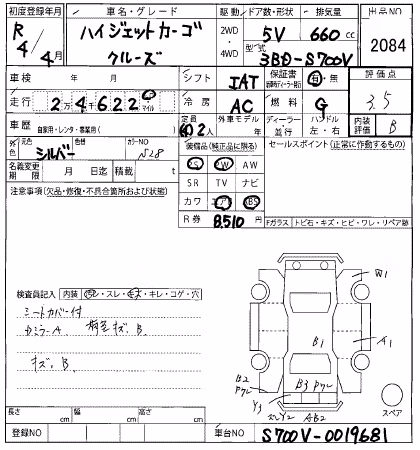 初度登録年月 車名・グレード 駆動 ドア数・形状 排気量 出品NO
R 4/4月 ハイジェットカーゴ クルーズ 2WD 4WD 5V 660 cc 2084
型式 3BD-S700V
車検 年 月 シフト IAT 保証書 有・無 評価点
走行 2万4千6 2 2 0 マイル 冷房 AC 燃料 G 3.5
車歴 自家用・レンタ・事業用( ) 定員 2人 外車モデル 年 ディーラー・並行 ハンドル 左・右 内装評価 B
外色 元色 シルバー 色替 カラーNO S28 装備品(純正品に限る) セールスポイント(正常に作動するもの)
名義変更期限 月 日迄 積載 t PS PW AW
注意事項(欠品・修復・不具合箇所および状態) SR TV ナビ
カワ エアB ABS
R券 8510円 Fガラス トビ石・キズ・ヒビ・ワレ・リペア跡
検査員記入 内装 汚レ・スレ・キズ・キレ・コゲ・穴
シートカバー付
キズ、B
W1
A1
B1
B2
B3
Y3
Y2
AB2
スペア
長さ cm 幅 cm 高さ cm
登録NO 車台NO S700V-0019681